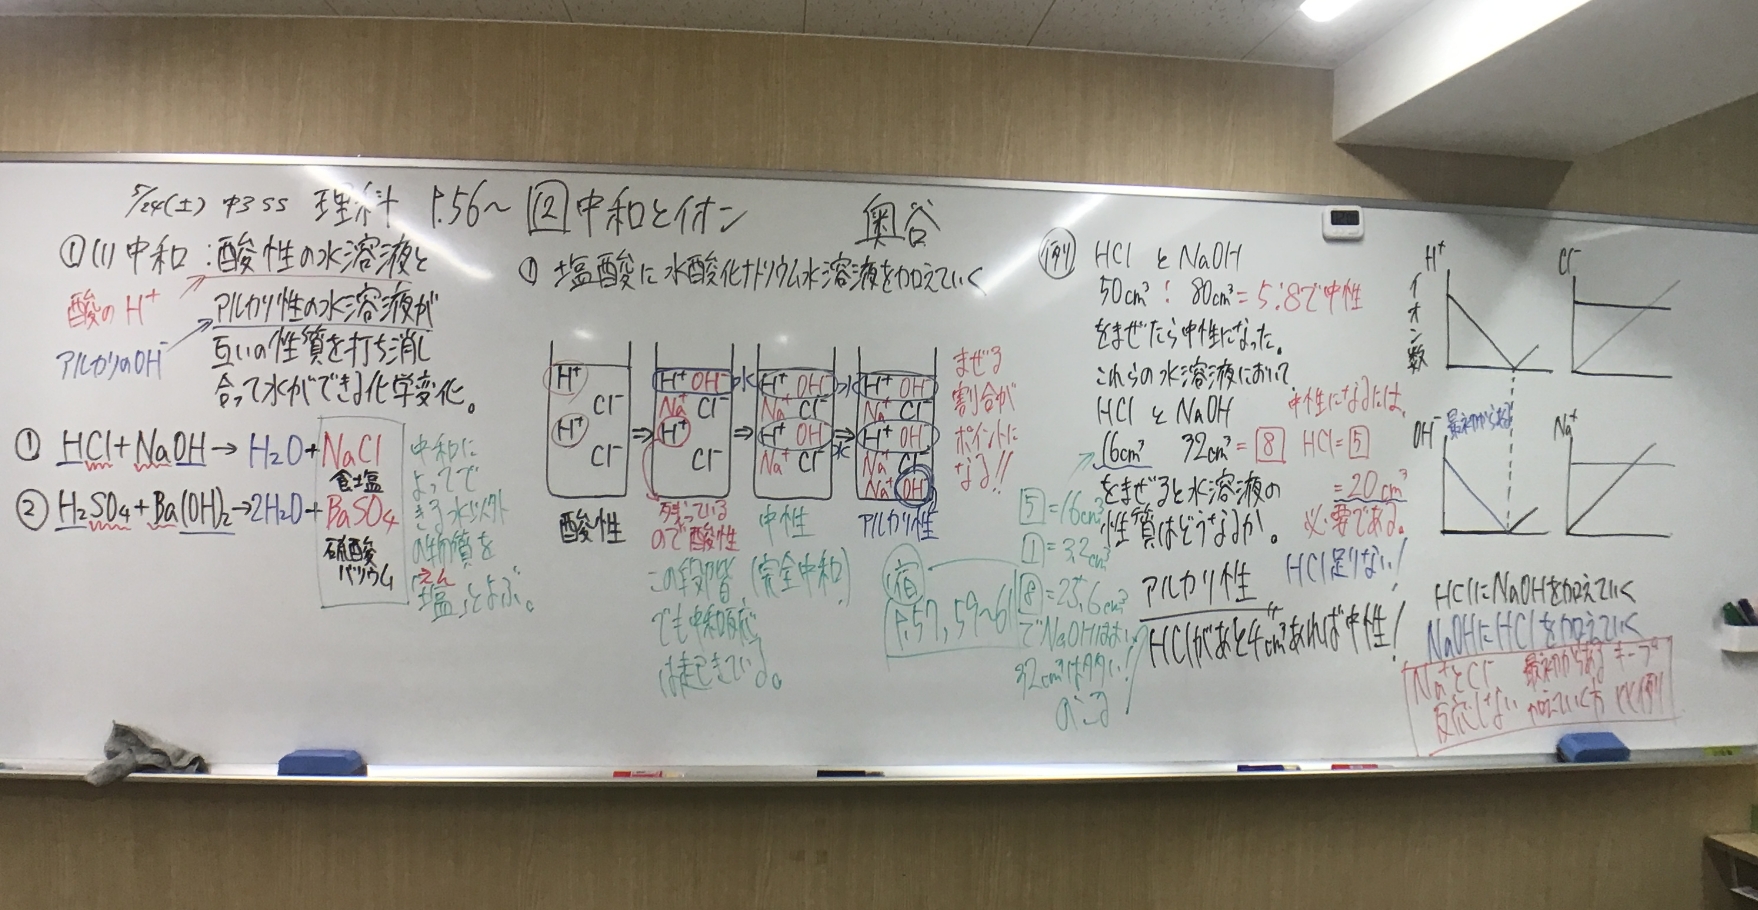 5/24(土) 中3SS 理科 P.56～ 12 中和とイオン 奥谷
①(1) 中和：酸性の水溶液と
アルカリ性の水溶液が
互いの性質を打ち消し
合って水ができる化学変化。
酸のH⁺
アルカリのOH⁻
① HCl+NaOH→H₂O+NaCl
食塩
② H₂SO₄+Ba(OH)₂→2H₂O+BaSO₄
硫酸
バリウム
中和に
よってで
きる水以外
の物質を
えん
「塩」とよぶ。
① 塩酸に水酸化ナトリウム水溶液を加えていく
H⁺ Cl⁻ H⁺ Cl⁻
⇒
H⁺ OH⁻ 水 Na⁺ Cl⁻ H⁺ Cl⁻
⇒
H⁺ OH⁻ 水 Na⁺ Cl⁻ H⁺ OH⁻ 水 Na⁺ Cl⁻
⇒
H⁺ OH⁻ Na⁺ Cl⁻ H⁺ OH⁻ Na⁺ Cl⁻ Na⁺ OH⁻
酸性
残っている
ので酸性
中性
アルカリ性
この段階
でも中和反応
は起きている。
(完全中和)
まぜる
割合が
ポイントに
なる!!
宿
P.57, 59～61
(例) HCl と NaOH
50cm³ : 80cm³ = 5:8で中性
をまぜたら中性になった。
これらの水溶液において
HCl と NaOH
16cm³ 32cm³ = 8
をまぜると水溶液の
性質はどうなるか。
中性になるには、
HCl=5
=20cm³
必要である。
HCl足りない!
アルカリ性
HClがあと4cm³あれば中性!
5=16cm³
1=3.2cm³
8=25.6cm³
でNaOHはよい
32cm³は多い!
のこる
H⁺
イオン数
Cl⁻
OH⁻
最初からある
Na⁺
HClにNaOHを加えていく
NaOHにHClを加えていく
Na⁺とCl⁻ 最初からある キープ
反応しない 加えていく方 比例